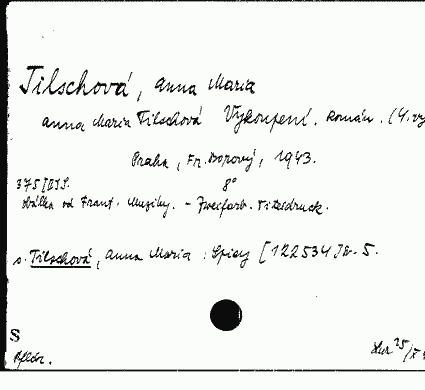 Tilschová, Anna Maria
Anna Maria Tilschová Vykoupení. Román. (4. vy
Praha, Fr. Borový, 1943.
375 [III] S. 8°
Obálka od Frant. Muziky. - Zweifarb. Titeldruck.
s. Tilschová, Anna Maria: Spisy [122534] Bd. 5.
S